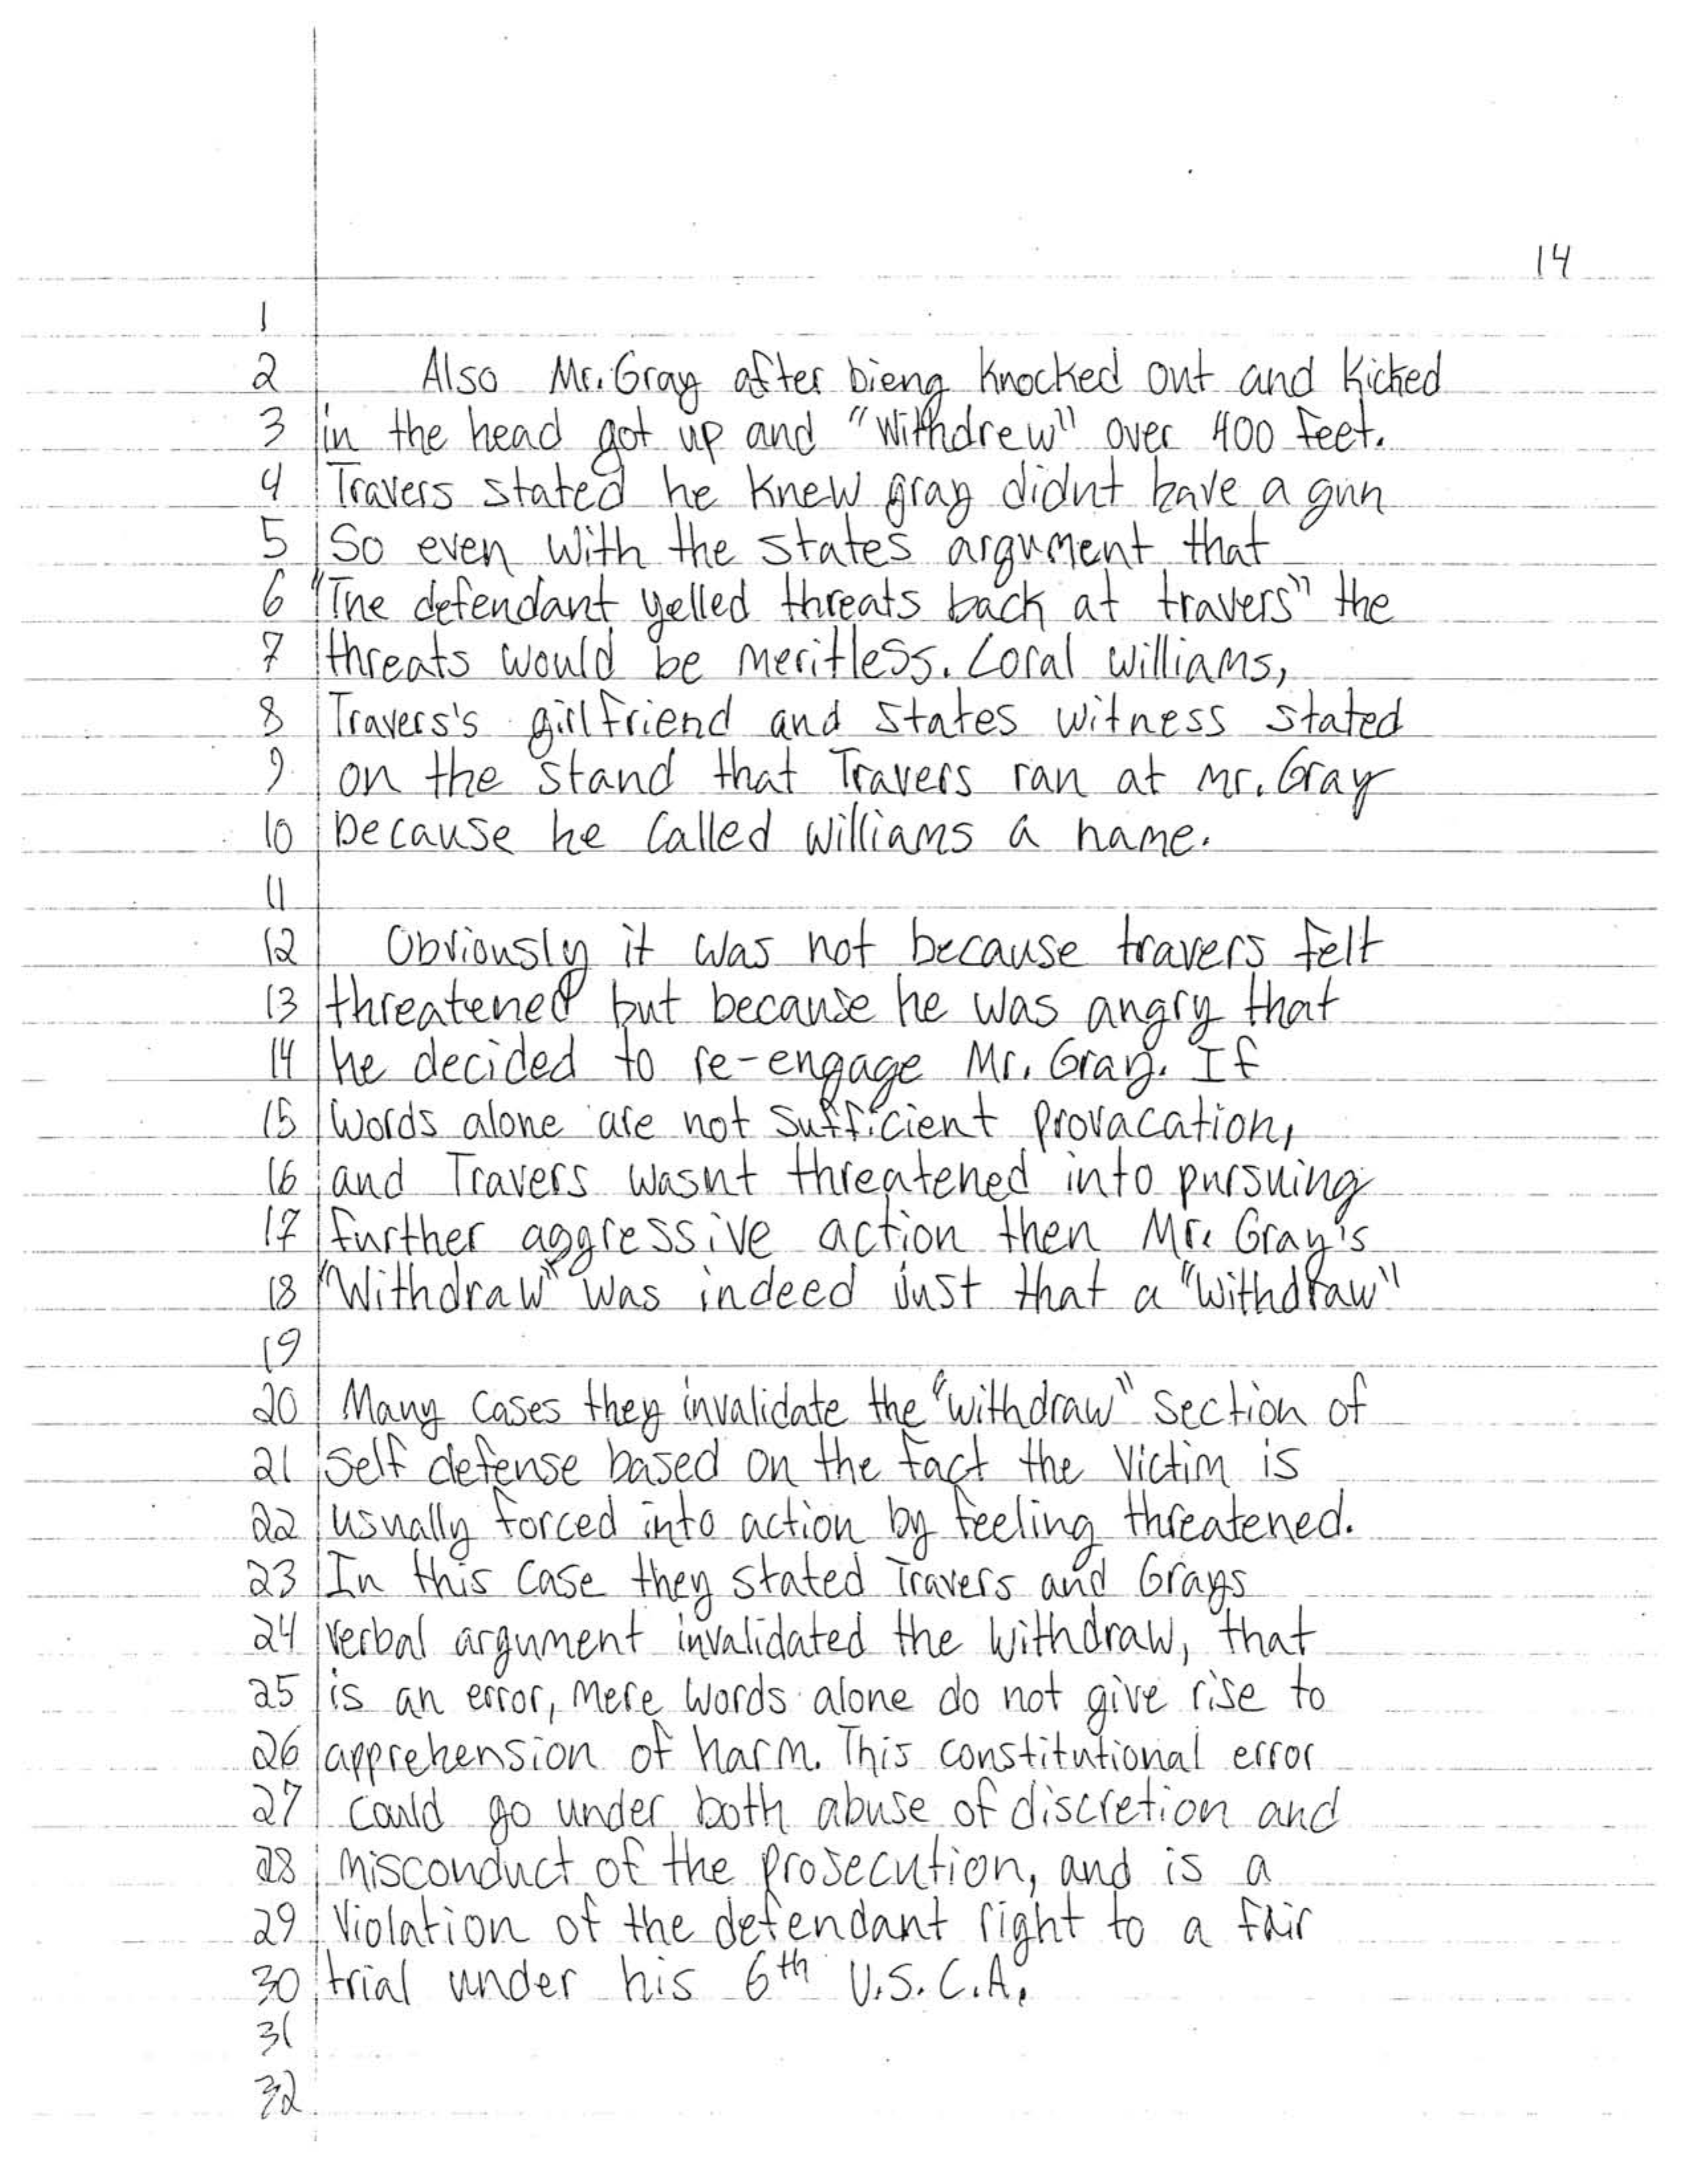 14
1
2 Also Mr. Gray after bieng knocked out and kicked
3 in the head got up and "Withdrew" over 400 feet.
4 Travers stated he knew gray didnt have a gun
5 So even with the states argument that
6 "The defendant yelled threats back at travers" the
7 threats would be meritless. Coral williams,
8 Travers's girlfriend and States witness stated
9 on the stand that Travers ran at mr. Gray
10 because he called williams a name.
11
12 Obviously it was not because travers felt
13 threatened but because he was angry that
14 he decided to re-engage Mr. Gray. If
15 Words alone are not sufficient provacation,
16 and Travers wasnt threatened into pursuing
17 further aggressive action then Mr. Gray's
18 "Withdraw" was indeed just that a "withdraw"
19
20 Many cases they invalidate the "withdraw" section of
21 self defense based on the fact the victim is
22 usually forced into action by feeling threatened.
23 In this case they stated Travers and Grays
24 verbal argument invalidated the withdraw, that
25 is an error, mere words alone do not give rise to
26 apprehension of harm. This constitutional error
27 could go under both abuse of discretion and
28 misconduct of the prosecution, and is a
29 violation of the defendant right to a fair
30 trial under his 6th U.S.C.A.
31
32